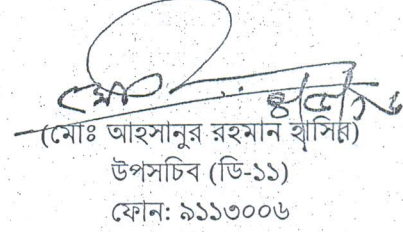 ৪/৫/২৬
(মোঃ আহসানুর রহমান হাসিব)
উপসচিব (ডি-১১)
ফোন: ৯১১৩০০৬